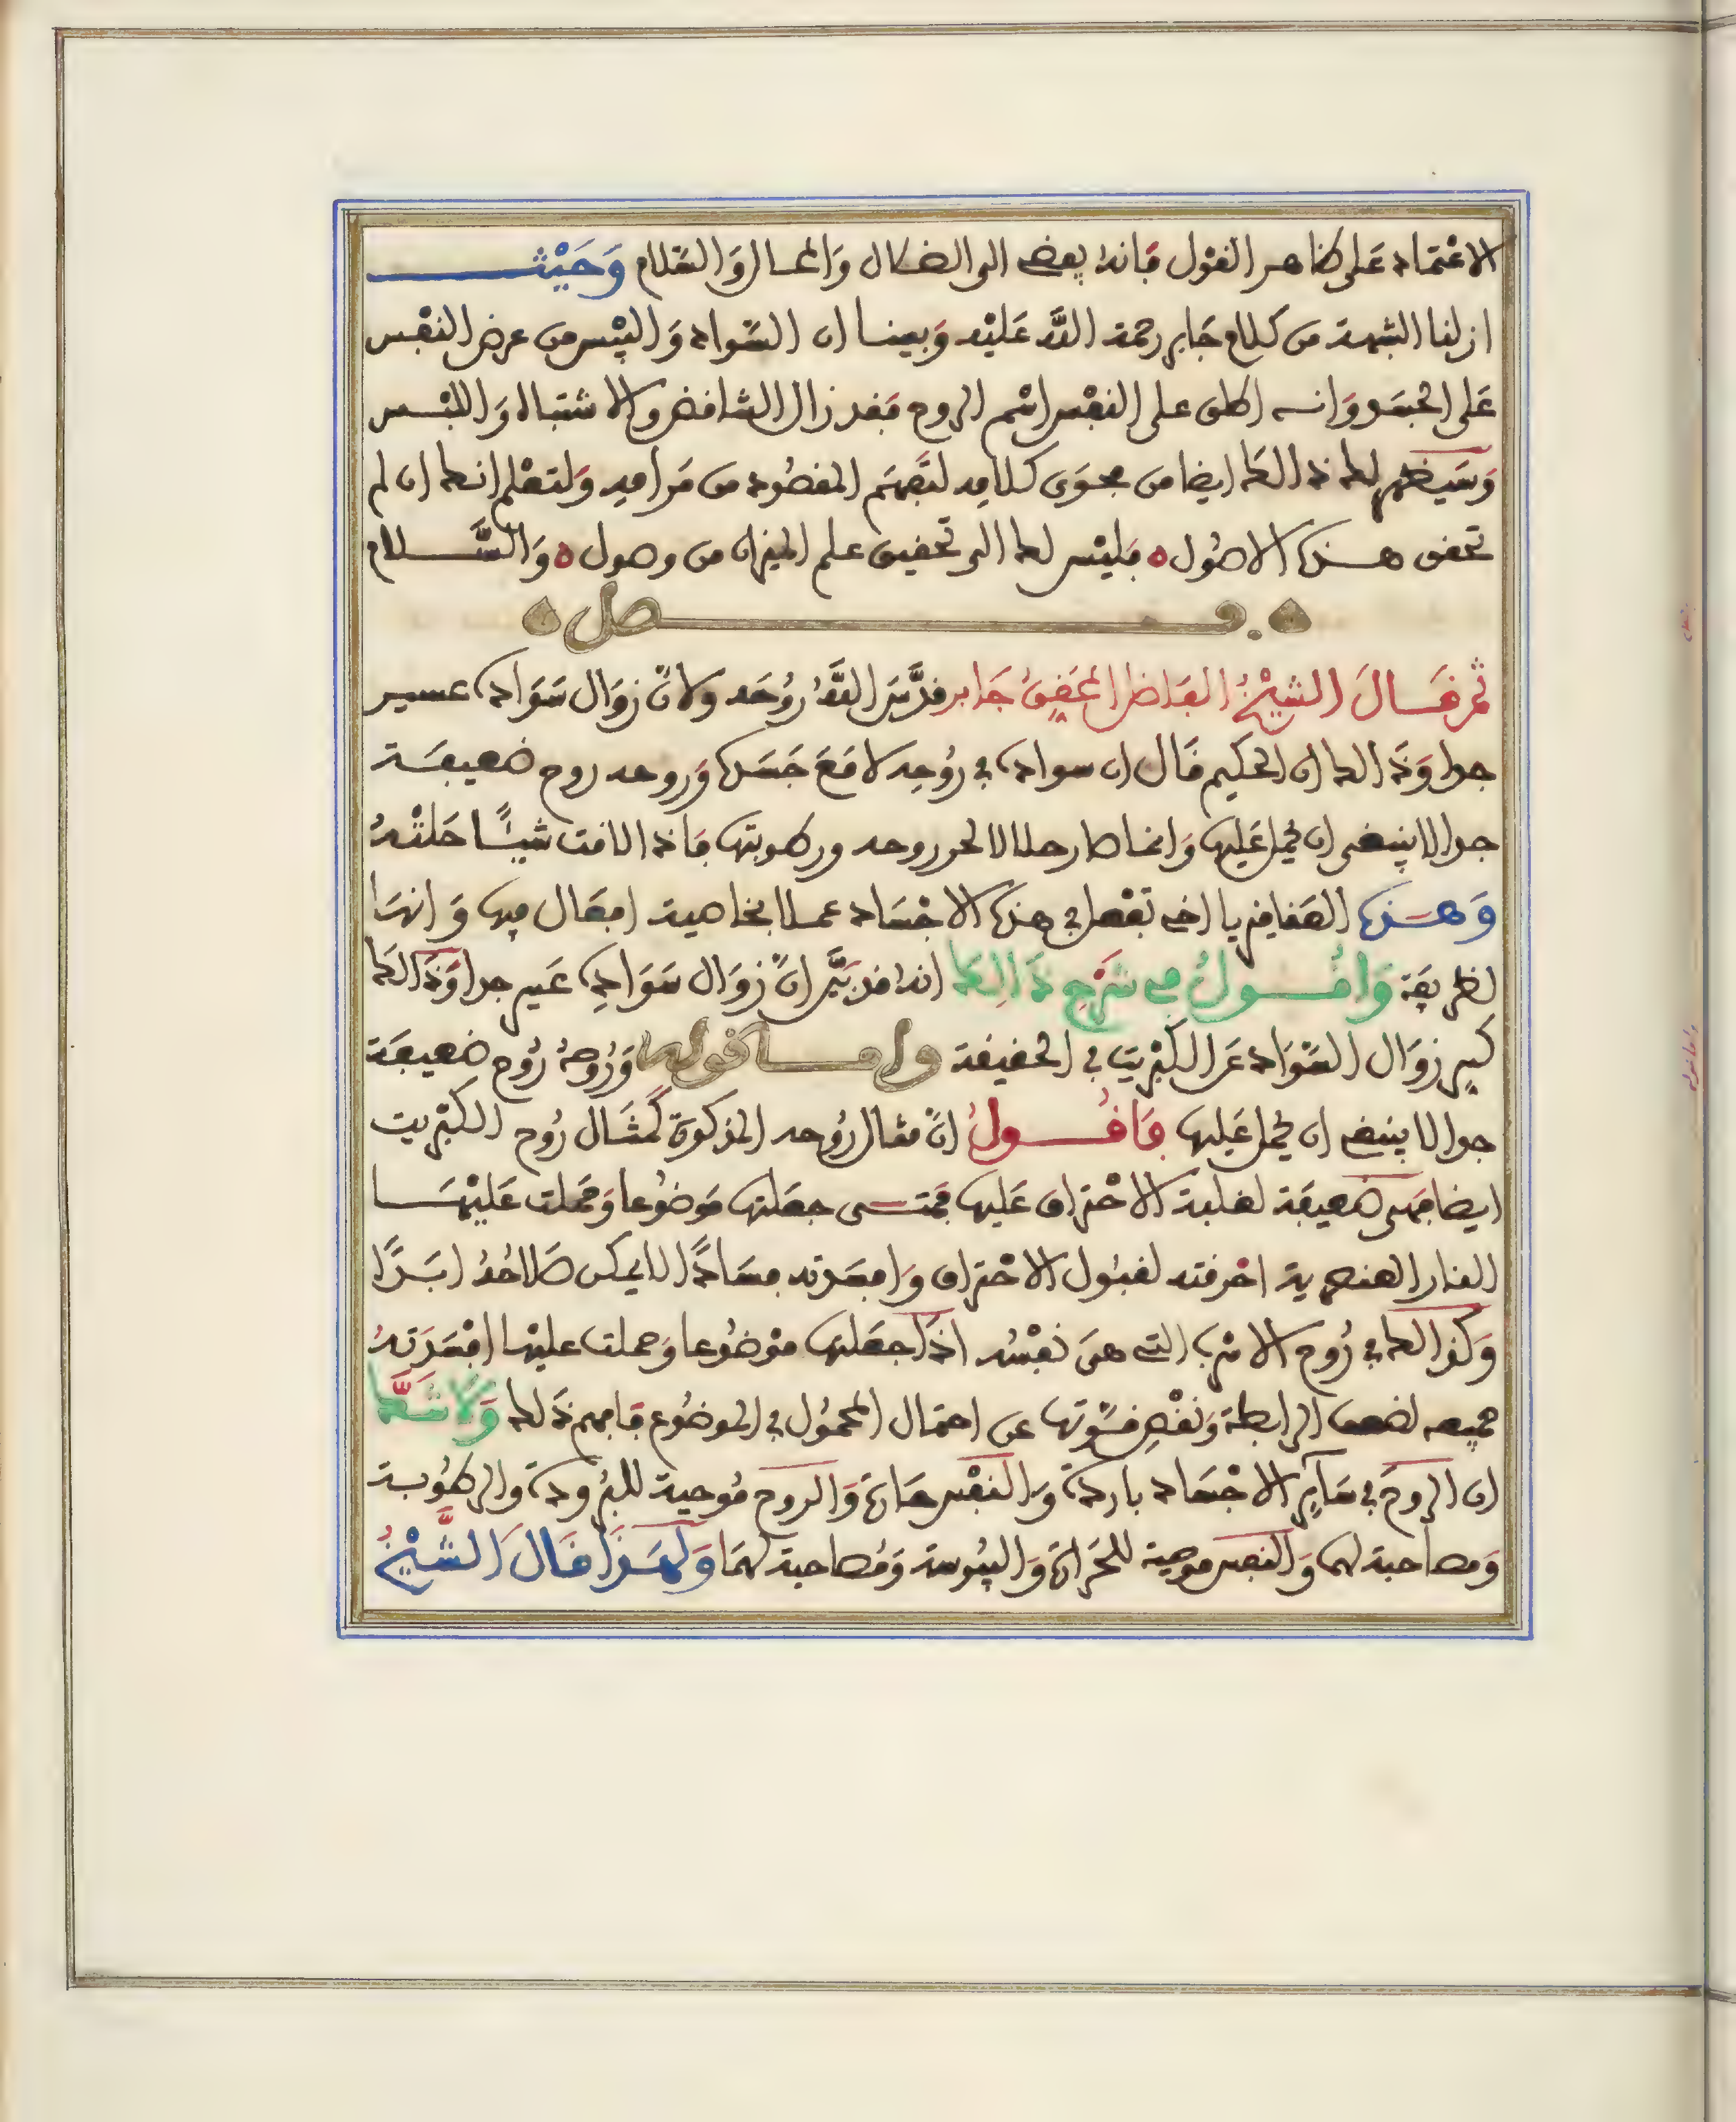 الاعتماد على ظاهر القول فانه يفضى الى الضلال والمحال والسلام وحيث
ازلنا الشبهة من كلام جابر رحمة الله عليه وبينا ان السواد واليبس من عرض النفس
على الجسد وانه اطلق على النفس اسم الروح فقد زال التناقض والاشتباه واللبس
وسيظهر لك ذالك ايضا من فحوى كلامه لتفهم المقصود من مرامه ولتعلم انك ان لم
تحقق هذه الاصول ه فليس لك الى تحقيق علم الميزان من وصول ه والسلام
فصل
ثم قال الشيخ الفاضل المحقق جابر قدس الله روحه ولان زوال سواده عسير
جدا وذالك ان الحكيم قال ان سواده في روحه لا مع جسده وروحه روح ضعيفة
جدا لا ينبغى ان يحمل عليها وانما صار حلالا لحر روحه ورطوبتها فاذا لاقت شيئا حللته
وهذه العقاقير يا اخى تفعل في هذه الاجساد عملا بخاصية افعال فيها وانها
لظريفة واقول في شرح ذالك انه قد بين ان زوال سواده عسير جدا وذالك
كسر زوال السواد عن الكبريت في الحقيقة واما قوله وروحه روح ضعيفة
جدا لا ينبغى ان يحمل عليها فاقول ان مثال روحه المذكورة كمثال روح الكبريت
ايضا فهى ضعيفة لغلبة الاحتراق عليها فمتى جعلتها موضوعا وحملت عليها
النار العنصرية احرقته لقبول الاحتراق وافسدته فسادا لا يمكن صلاحه ابدا
وكذالك في روح الاسرب التى هى نفسه اذا جعلتها موضوعا وحملت عليها افسدته
جميعه لضعف الرابطة ونقص قسوتها عن احتمال المحمول في الموضوع فافهم ذلك ولا شك
ان الروح في سآئر الاجساد باردة والنفس حارة والروح موجبة للبرودة والرطوبة
ومصاحبة لهما والنفس موجبة للحرارة واليبوسة ومصاحبة لهما ولهذا قال الشيخ